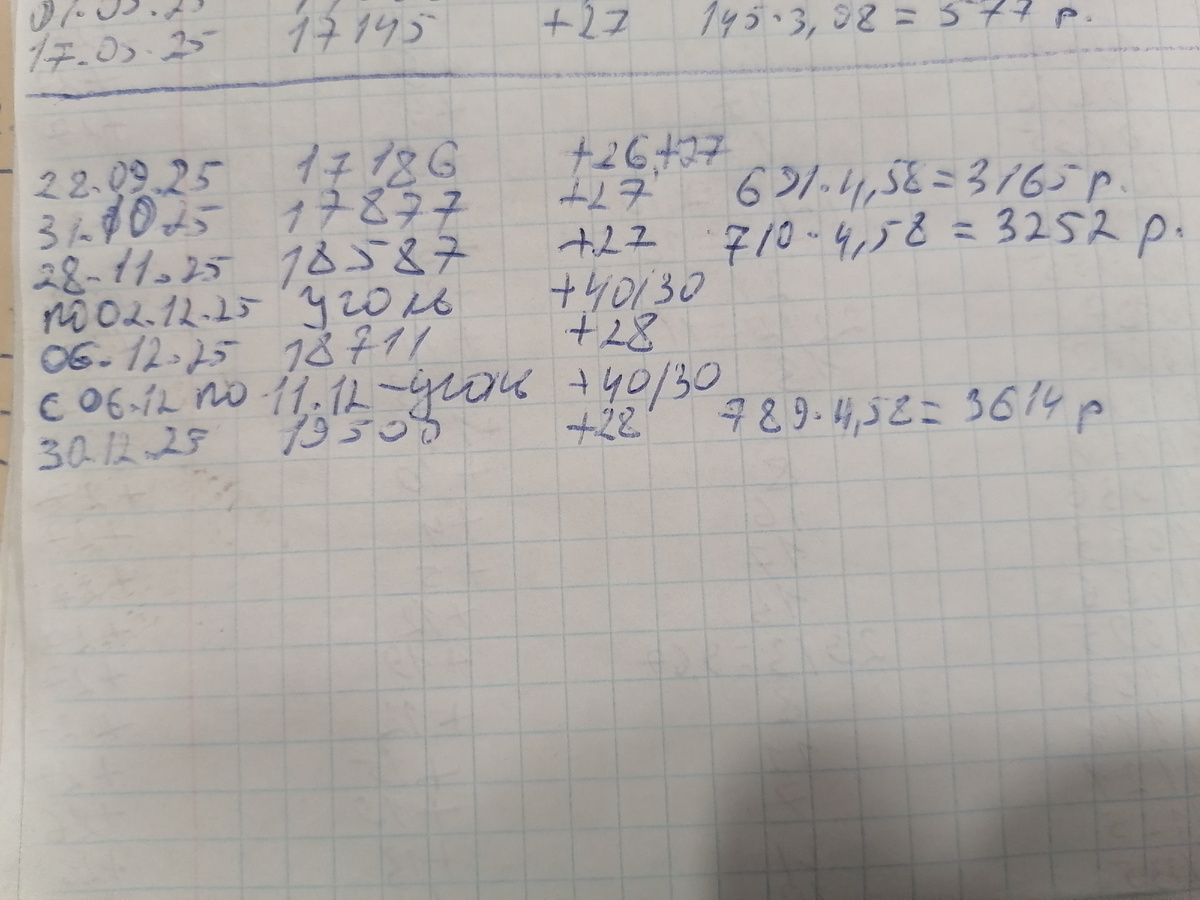 17.05.25 17145 +27 145·3,98 = 577 р.
28.09.25 17186 +26,+27
31.10.25 17877 +27 691·4,58=3165 р.
28.11.25 18587 +27 710·4,58 = 3252 р.
по 02.12.25 уголь +40/30
06.12.25 18711 +28
с 06.12 по 11.12 – уголь +40/30
30.12.25 19500 +28 789·4,58= 3614 р